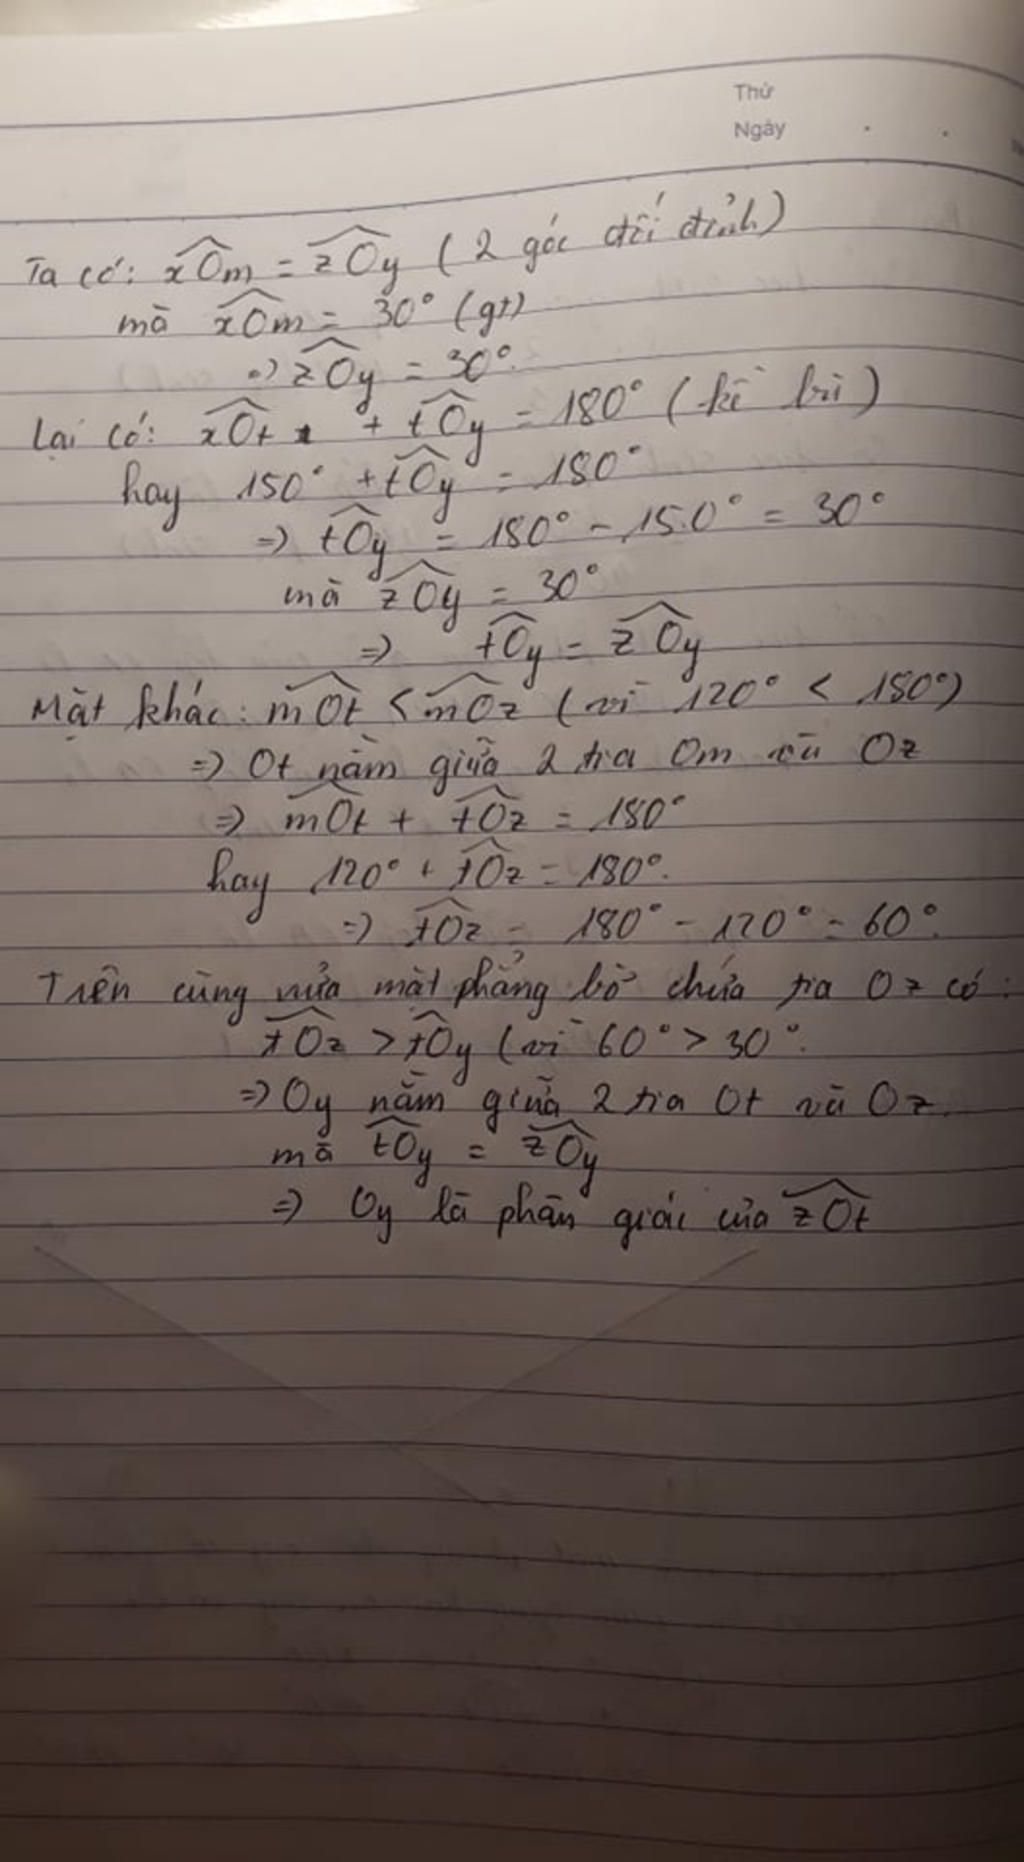 Thứ
Ngày
Ta có: xOm = zOy (2 góc đối đỉnh)
mà xOm = 30° (gt)
=> zOy = 30°.
Lại có: xOt + tOy = 180° (kề bù)
hay 150° + tOy = 180°
=> tOy = 180° - 150° = 30°
mà zOy = 30°
=> tOy = zOy
Mặt khác: mOt < mOz (vì 120° < 180°)
=> Ot nằm giữa 2 tia Om và Oz
=> mOt + tOz = 180°
hay 120° + tOz = 180°.
=> tOz = 180° - 120° = 60°.
Trên cùng nửa mặt phẳng bờ chứa tia Oz có:
tOz > tOy (vì 60° > 30°.
=> Oy nằm giữa 2 tia Ot và Oz.
mà tOy = zOy
=> Oy là phân giác của zOt